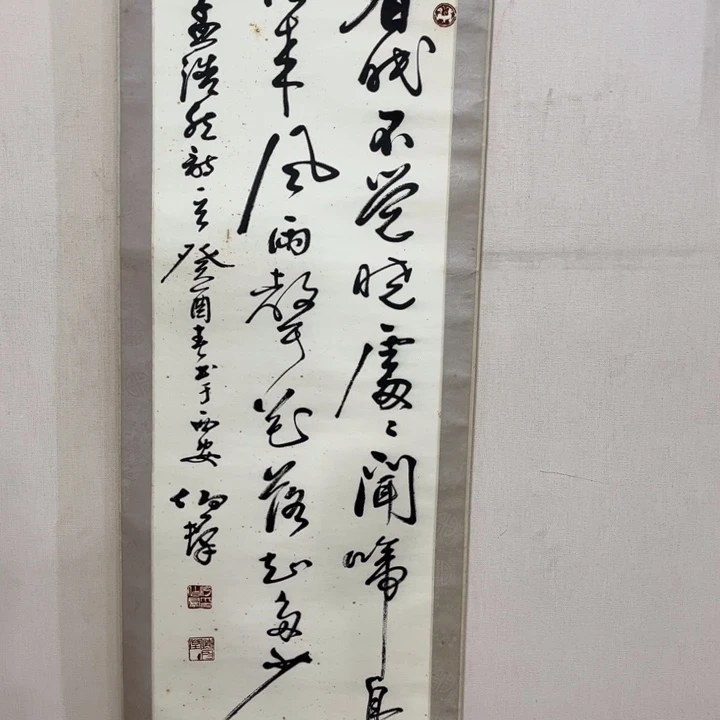 春眠不觉晓處々闻啼鸟
来风雨声花落知多少
孟浩然诗意癸酉春书于西安